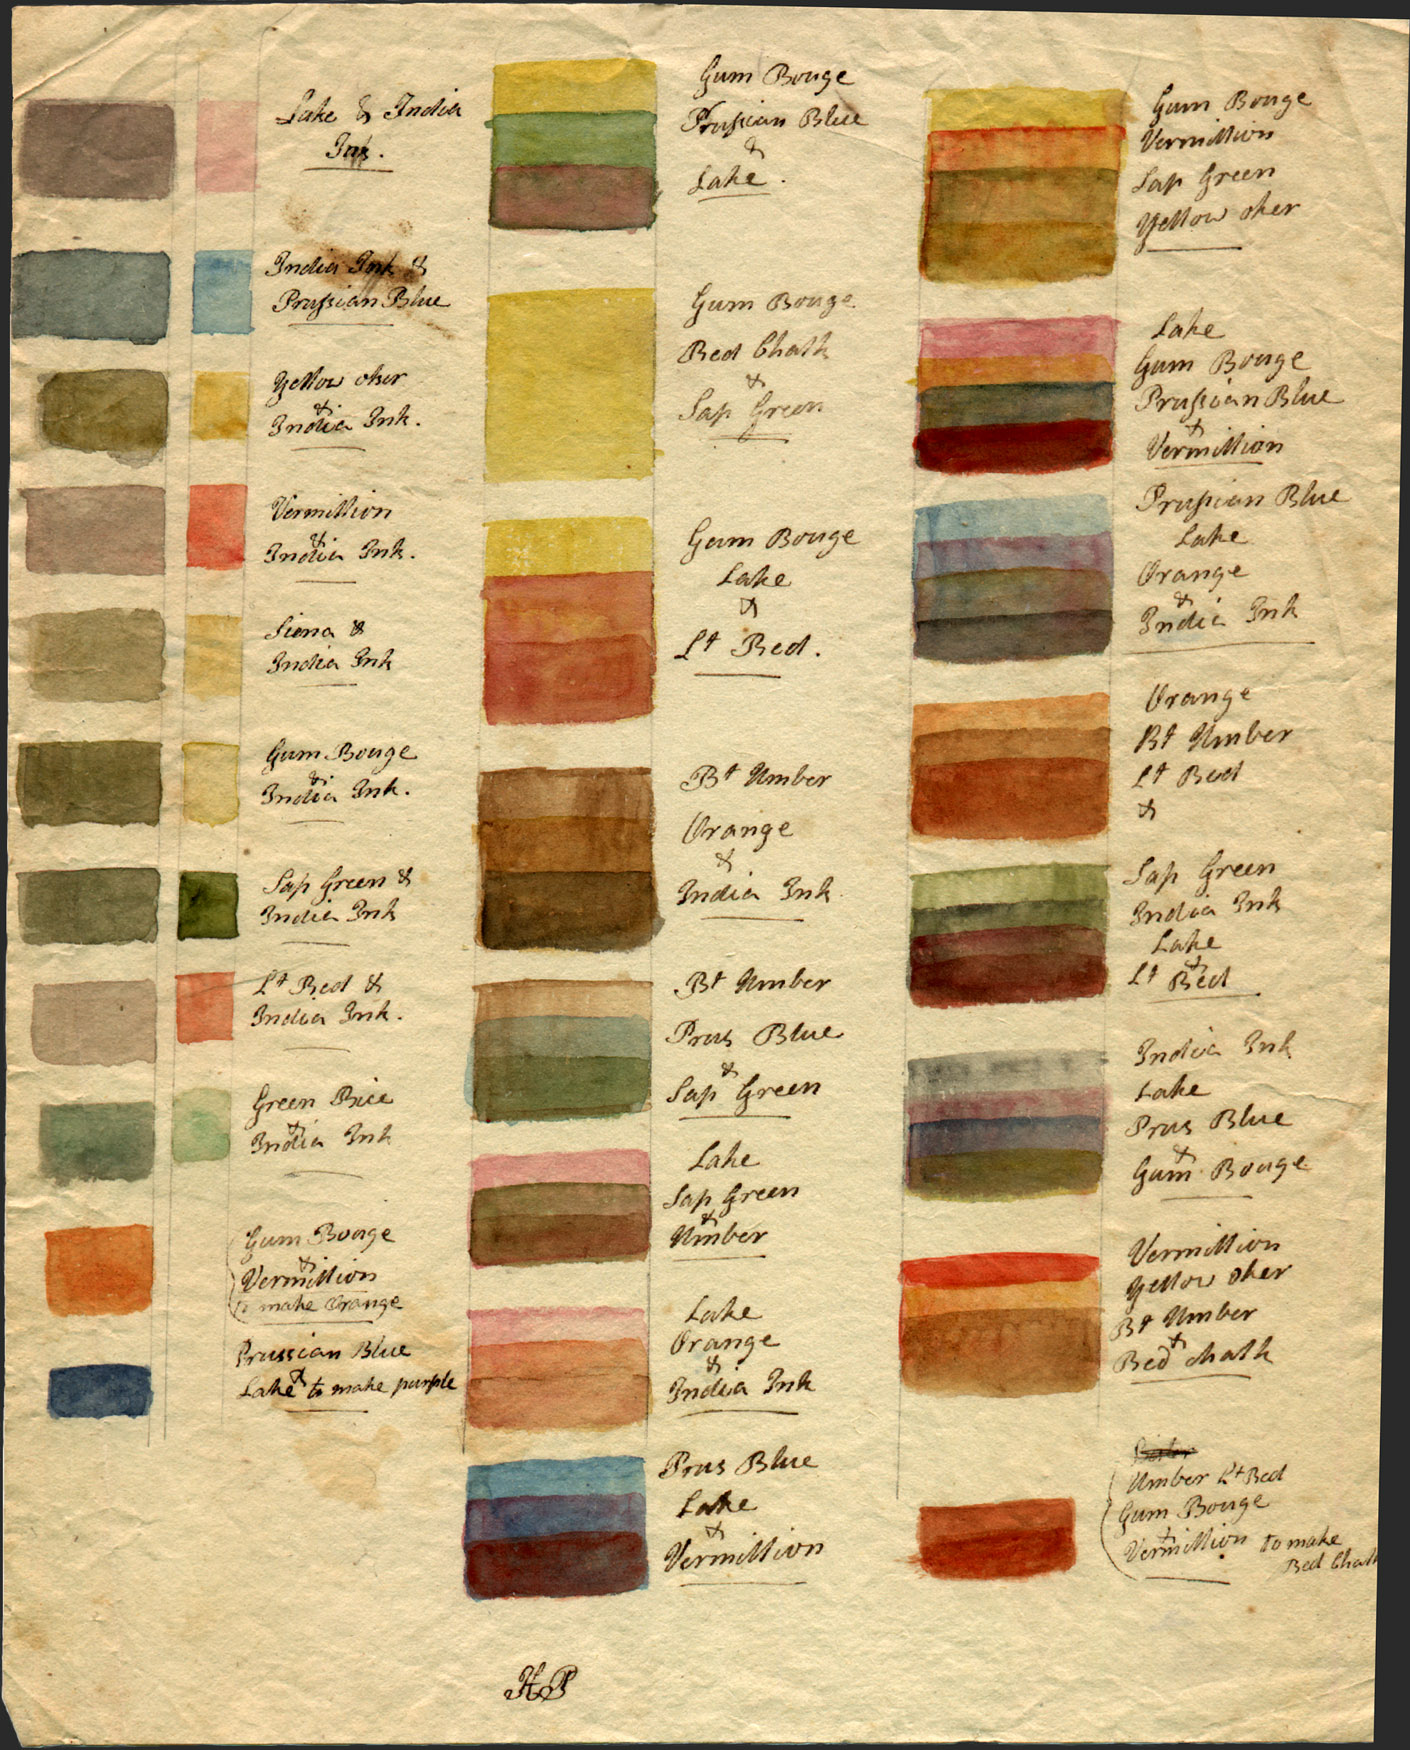 Lake & India
Ink.
India Ink &
Prussian Blue
Yellow oker
&
India Ink.
Vermillion
&
India Ink.
Siena &
India Ink
Gum Bouge
&
India Ink.
Sap Green &
India Ink
Lt Red &
India Ink.
Green Bice
&
India Ink
Gum Bouge
&
Vermillion
to make Orange
Prussian Blue
&
Lake to make purple
Gum Bouge
Prussian Blue
&
Lake.
Gum Bouge
Red Chalk
&
Sap Green
Gum Bouge
Lake
&
Lt Red.
Bt Umber
Orange
&
India Ink
Bt Umber
Prus Blue
&
Sap Green
Lake
Sap Green
&
Umber
Lake
Orange
&
India Ink
Prus Blue
Lake
&
Vermillion
HP
Gum Bouge
Vermillion
Sap Green
Yellow oker
Lake
Gum Bouge
Prussian Blue
&
Vermillion
Prussian Blue
Lake
Orange
&
India Ink
Orange
Bt Umber
Lt Red
&
Sap Green
India Ink
Lake
&
Lt Red
India Ink
Lake
Prus Blue
&
Gum Bouge
Vermillion
Yellow Oker
Bt Umber
&
Red chalk
Umber Lt Red
Gum Bouge
&
Vermillion to make
Red Chalk